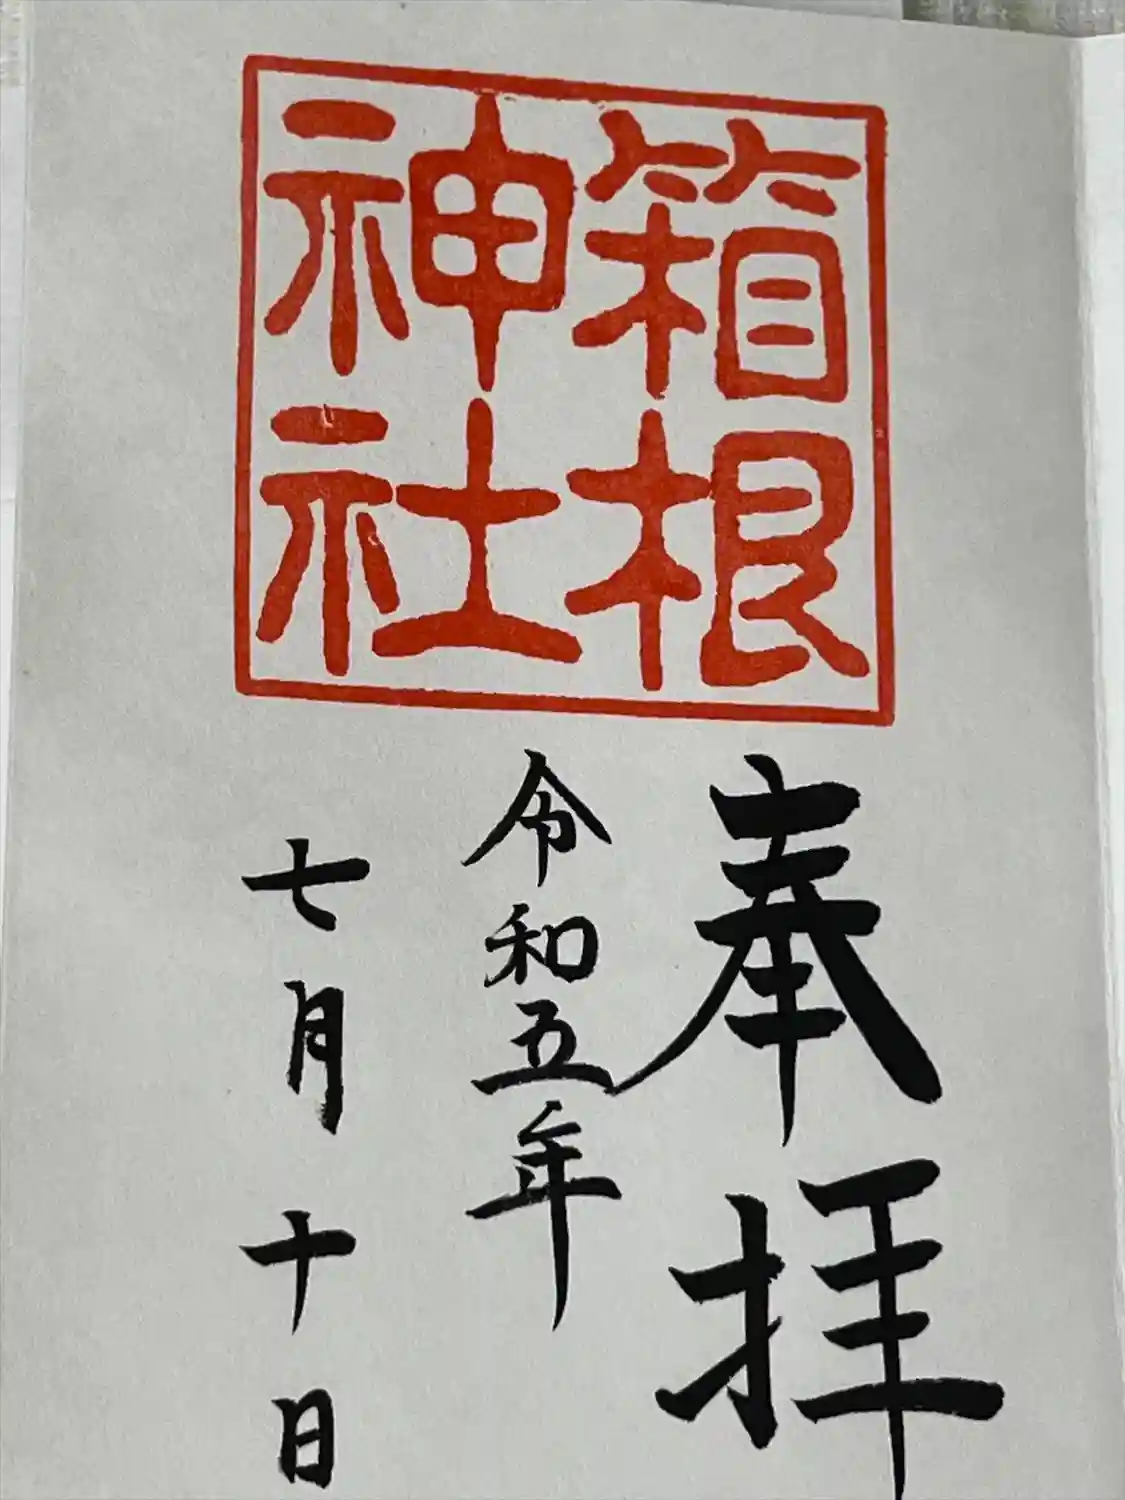 箱根
神社
奉拝
令和五年
七月十日